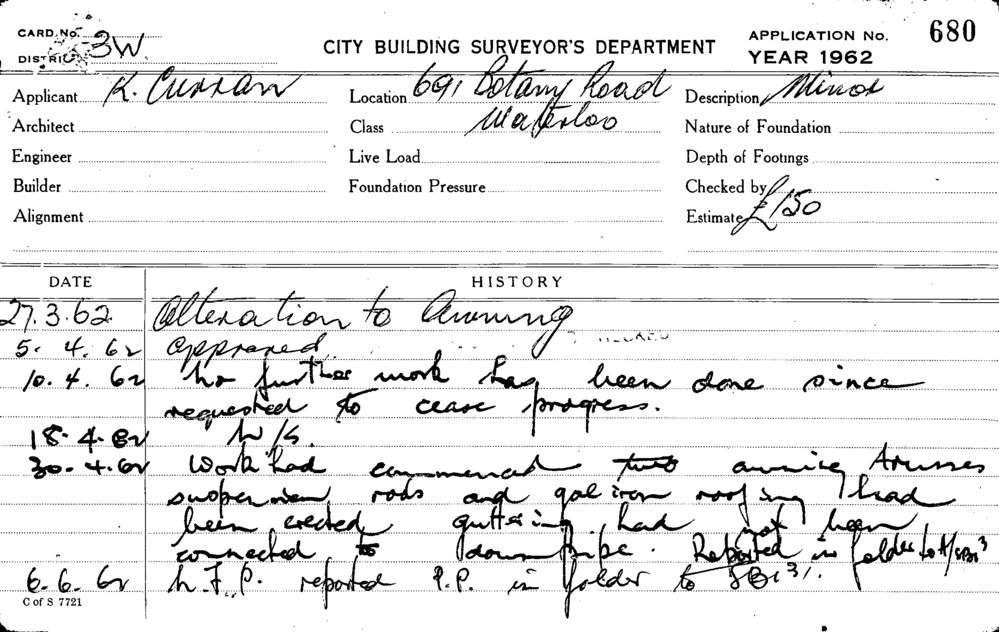 CARD No. 3W.
DISTRICT
CITY BUILDING SURVEYOR'S DEPARTMENT
APPLICATION No. 680
YEAR 1962
Applicant K. Curran
Location 691 Botany Road
Description Minor
Architect
Class Waterloo
Nature of Foundation
Engineer
Live Load
Depth of Footings
Builder
Foundation Pressure
Checked by
Alignment
Estimate £150
DATE HISTORY
27.3.62 Alteration to Awning
5. 4. 62 approved.
10. 4. 62 No further work has been done since
requested to cease progress.
18. 4. 62 W/S.
30. 4. 62 Work had commenced two awning trusses
suspension rods and gal iron roofing had
been erected guttering had not been
connected to downpipe. Reported in folder to
6. 6. 62 N.F.P. reported P.P. in folder to SBI 3/.
C of S 7721